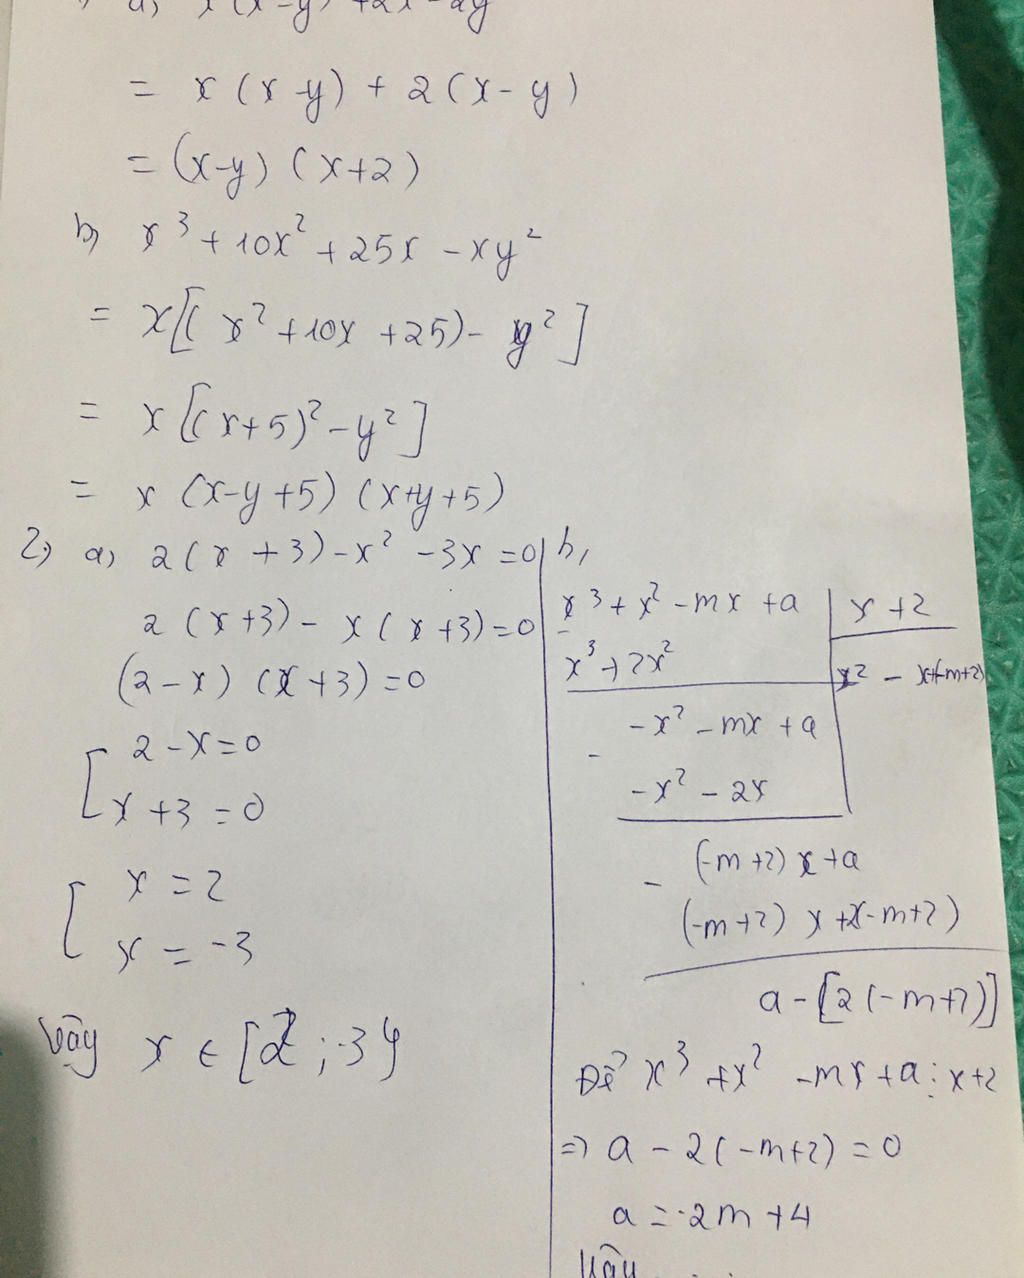 a) x(x-y) +2x-2y
= x(x-y) + 2(x-y)
= (x-y) (x+2)
b) x³ + 10x² + 25x - xy²
= x[(x² + 10x + 25) - y²]
= x[(x+5)² - y²]
= x (x-y+5) (x+y+5)
2) a) 2(x+3) - x² - 3x = 0
2(x+3) - x(x+3) = 0
(2-x) (x+3) = 0
[ 2-x = 0
x+3 = 0
[ x = 2
x = -3
Vậy x ∈ {2; -3}
b,
x³ + x² - mx + a | x + 2
- x³ + 2x² | x² - x+(-m+2)
-x² - mx + a
- -x² - 2x
(-m+2) x + a
- (-m+2) x + 2(-m+2)
a - [2(-m+2)]
Để x³ + x² - mx + a ⋮ x+2
=> a - 2(-m+2) = 0
a = -2m + 4
Vậy